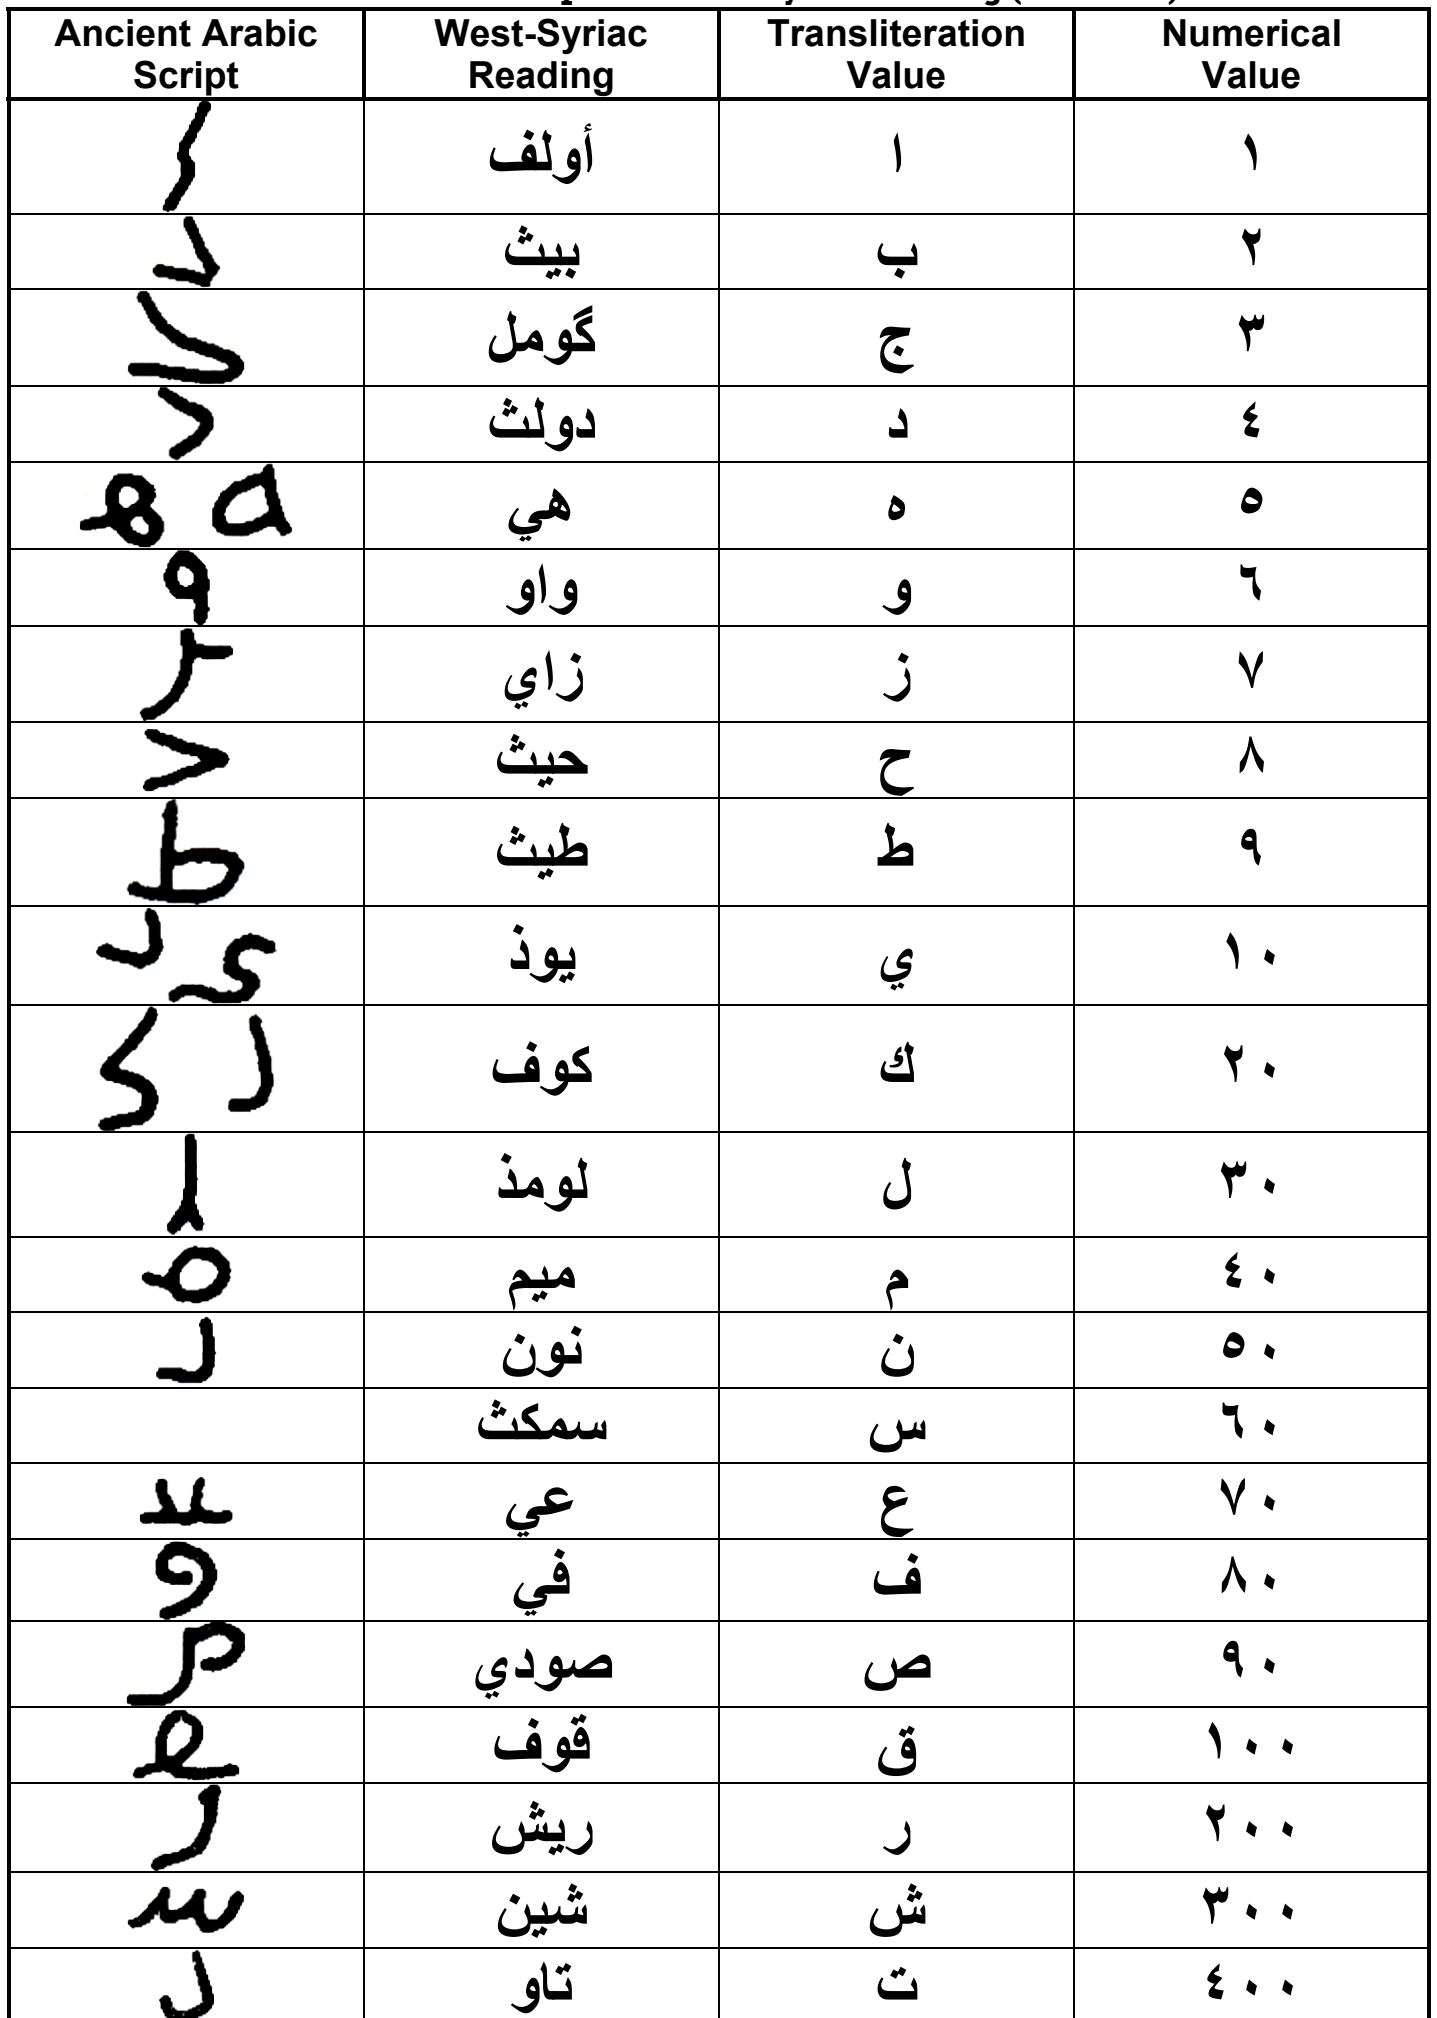 Ancient Arabic Script West-Syriac Reading Transliteration Value Numerical Value
أولف ا ١
بيث ب ٢
گومل ج ٣
دولث د ٤
هي ه ٥
واو و ٦
زاي ز ٧
حيث ح ٨
طيث ط ٩
يوذ ي ١٠
كوف ك ٢٠
لومذ ل ٣٠
ميم م ٤٠
نون ن ٥٠
سمكث س ٦٠
عي ع ٧٠
في ف ٨٠
صودي ص ٩٠
قوف ق ١٠٠
ريش ر ٢٠٠
شين ش ٣٠٠
تاو ت ٤٠٠